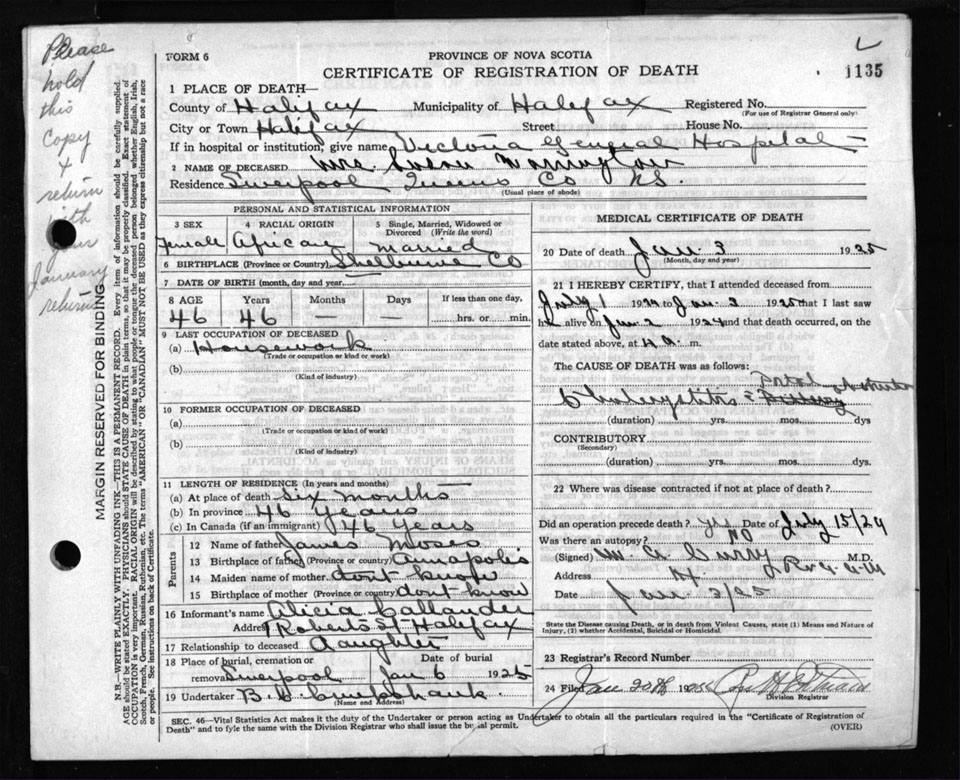 Please
hold
this
copy
&
return
with
your
January
returns
MARGIN RESERVED FOR BINDING.
N.B.—WRITE PLAINLY WITH UNFADING INK—THIS IS A PERMANENT RECORD. Every item of information should be carefully supplied.
AGE should be stated EXACTLY. PHYSICIANS should STATE CAUSE OF DEATH in plain terms, so that it may be properly classified. Exact statement of
OCCUPATION is very important. RACIAL ORIGIN will be described by stating to what people or tongue the deceased person belonged whether English, Irish,
Scotch, French, German, Russian, Ruthenian, etc. The terms "AMERICAN" or "CANADIAN" MUST NOT BE USED as they express citizenship but not a race
or people. See instructions on back of Certificate.
FORM 6
PROVINCE OF NOVA SCOTIA
CERTIFICATE OF REGISTRATION OF DEATH
1135
1 PLACE OF DEATH—
County of Halifax Municipality of Halifax Registered No.
(For use of Registrar General only)
City or Town Halifax Street House No.
If in hospital or institution, give name Victoria General Hospital
2 NAME OF DECEASED Mrs.
Residence Liverpool Queens Co N.S.
(Usual place of abode)
PERSONAL AND STATISTICAL INFORMATION
3 SEX 4 RACIAL ORIGIN 5 Single, Married, Widowed or
Divorced (Write the word)
Female African Married
6 BIRTHPLACE (Province or Country) Shelburne Co
7 DATE OF BIRTH (month, day and year)
8 AGE Years Months Days If less than one day,
46 46 — — hrs. or min.
9 LAST OCCUPATION OF DECEASED
(a) Housework
(Trade or occupation or kind or work)
(b)
(Kind of industry)
10 FORMER OCCUPATION OF DECEASED
(a)
(Trade or occupation or kind of work)
(b)
(Kind of industry)
11 LENGTH OF RESIDENCE (In years and months)
(a) At place of death Six months
(b) In province 46 years
(c) In Canada (if an immigrant) 46 years
Parents
12 Name of father James Moses
13 Birthplace of father (Province or country) Annapolis
14 Maiden name of mother dont know
15 Birthplace of mother (Province or country) dont know
16 Informant's name Alicia Callander
Address Roberts St Halifax
17 Relationship to deceased daughter
18 Place of burial, cremation or Date of burial
removal Liverpool Jan 6 1925
19 Undertaker B. Cruikshank.
(Name and Address)
MEDICAL CERTIFICATE OF DEATH
20 Date of death Jan 3 1925
(Month, day and year)
21 I HEREBY CERTIFY, that I attended deceased from
July 1 1924 to Jan. 3 1925 that I last saw
h alive on Jan 2 1924 and that death occurred, on
date stated above, at 4 a. m.
The CAUSE OF DEATH was as follows:
(duration) yrs. mos. dys
CONTRIBUTORY
(Secondary)
(duration) yrs. mos. dys.
22 Where was disease contracted if not at place of death?
Did an operation precede death? yes Date of July 15/24
Was there an autopsy? No
(Signed) Curry M.D.
Address
Date Jan. 3/25
State the Disease causing Death, or in death from Violent Causes, state (1) Means and Nature of
Injury, (2) whether Accidental, Suicidal or Homicidal.
23 Registrar's Record Number
24 Filed Jan 20th 1925
Division Registrar
SEC. 46—Vital Statistics Act makes it the duty of the Undertaker or person acting as Undertaker to obtain all the particulars required in the "Certificate of Registration of
Death" and to fyle the same with the Division Registrar who shall issue the burial permit.
(OVER)